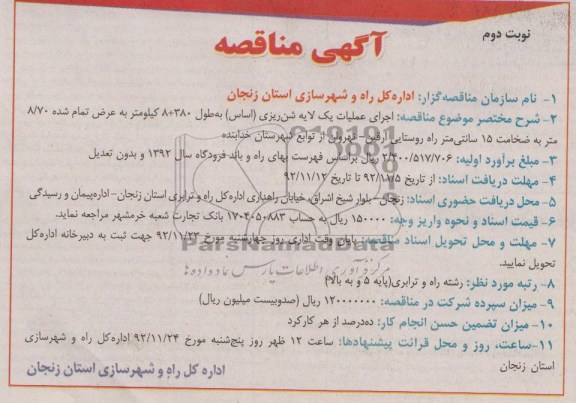 نوبت دوم
آگهی مناقصه
۱- نام سازمان مناقصه‌گزار: اداره‌کل راه و شهرسازی استان زنجان
۲- شرح مختصر موضوع مناقصه: اجرای عملیات یک لایه شن‌ریزی (اساس) به‌طول ۸+۳۸۰ کیلومتر به عرض تمام شده ۸/۷۰
متر به ضخامت ۱۵ سانتی‌متر راه روستایی ارقین- قهرولن از توابع شهرستان خدابنده
۳- مبلغ برآورد اولیه: ۲/۴۰۰/۵۱۷/۷۰۶ ریال براساس فهرست بهای راه و باند فرودگاه سال ۱۳۹۲ و بدون تعدیل
۴- مهلت دریافت اسناد: از تاریخ ۹۲/۱۱/۵ تا تاریخ ۹۲/۱۱/۱۲
۵- محل دریافت حضوری اسناد: زنجان- بلوار شیخ اشراق، خیابان راهداری اداره‌کل راه و ترابری استان زنجان- اداره‌پیمان و رسیدگی
۶- قیمت اسناد و نحوه واریز وجه: ۱۵۰۰۰۰ ریال به حساب ۱۷۰۴۰۵۰۸۸۳ بانک تجارت شعبه خرمشهر مراجعه نماید.
۷- مهلت و محل تحویل اسناد مناقصه: پایان وقت اداری روز چهارشنبه مورخ ۹۲/۱۱/۲۳ جهت ثبت به دبیرخانه اداره‌کل
تحویل نمایید.
ParsNamadData
مرکز فرآوری اطلاعات پارس نماد داده‌ها
۸- رتبه مورد نظر: رشته راه و ترابری(پایه ۵ و به بالا)
۹- میزان سپرده شرکت در مناقصه: ۱۲۰۰۰۰۰۰۰ ریال (صدوبیست میلیون ریال)
۱۰- میزان تضمین حسن انجام کار: ده‌درصد از هر کارکرد
۱۱-ساعت، روز و محل قرائت پیشنهادها: ساعت ۱۲ ظهر روز پنج‌شنبه مورخ ۹۲/۱۱/۲۴ اداره‌کل راه و شهرسازی
استان زنجان
اداره کل راه و شهرسازی استان زنجان